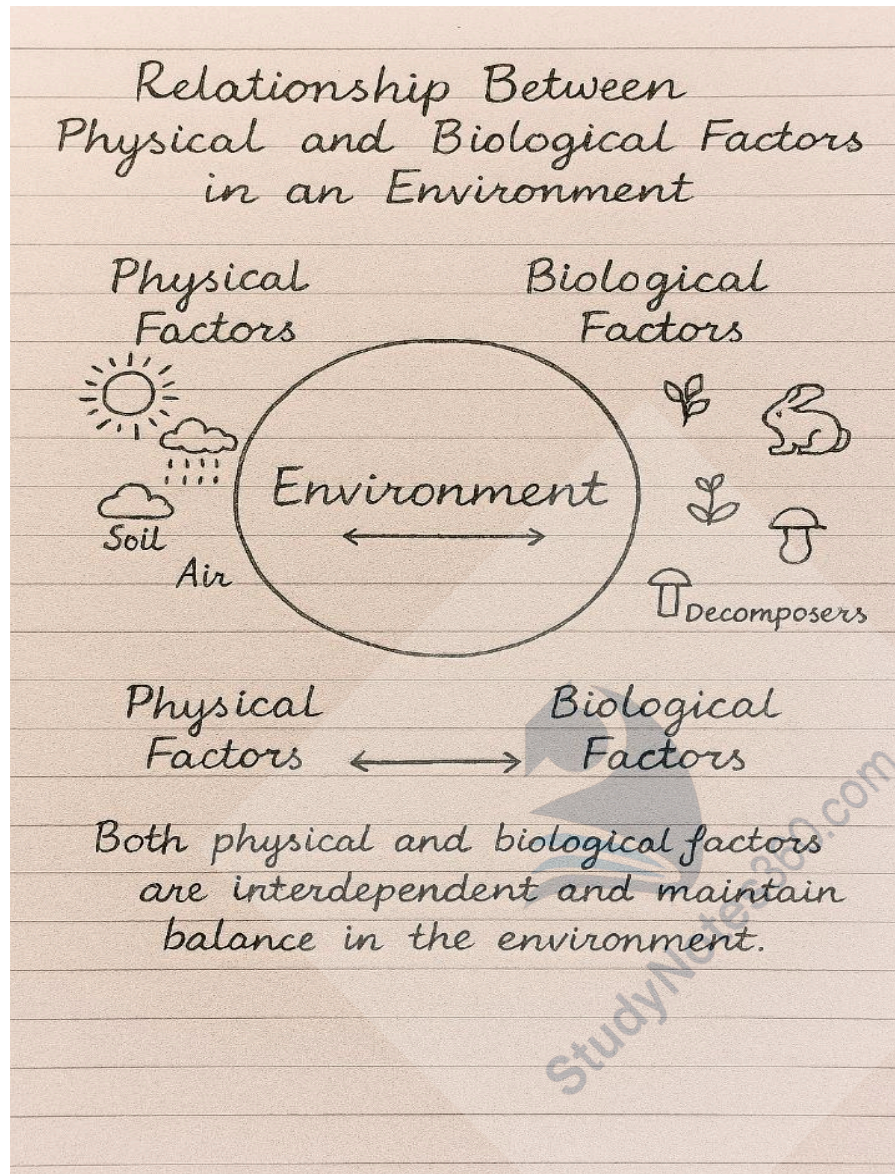 Relationship Between
Physical and Biological Factors
in an Environment
Physical
Factors
Biological
Factors
Environment
Soil
Air
Decomposers
Physical
Factors
Biological
Factors
Both physical and biological factors
are interdependent and maintain
balance in the environment.
StudyNotes360.com